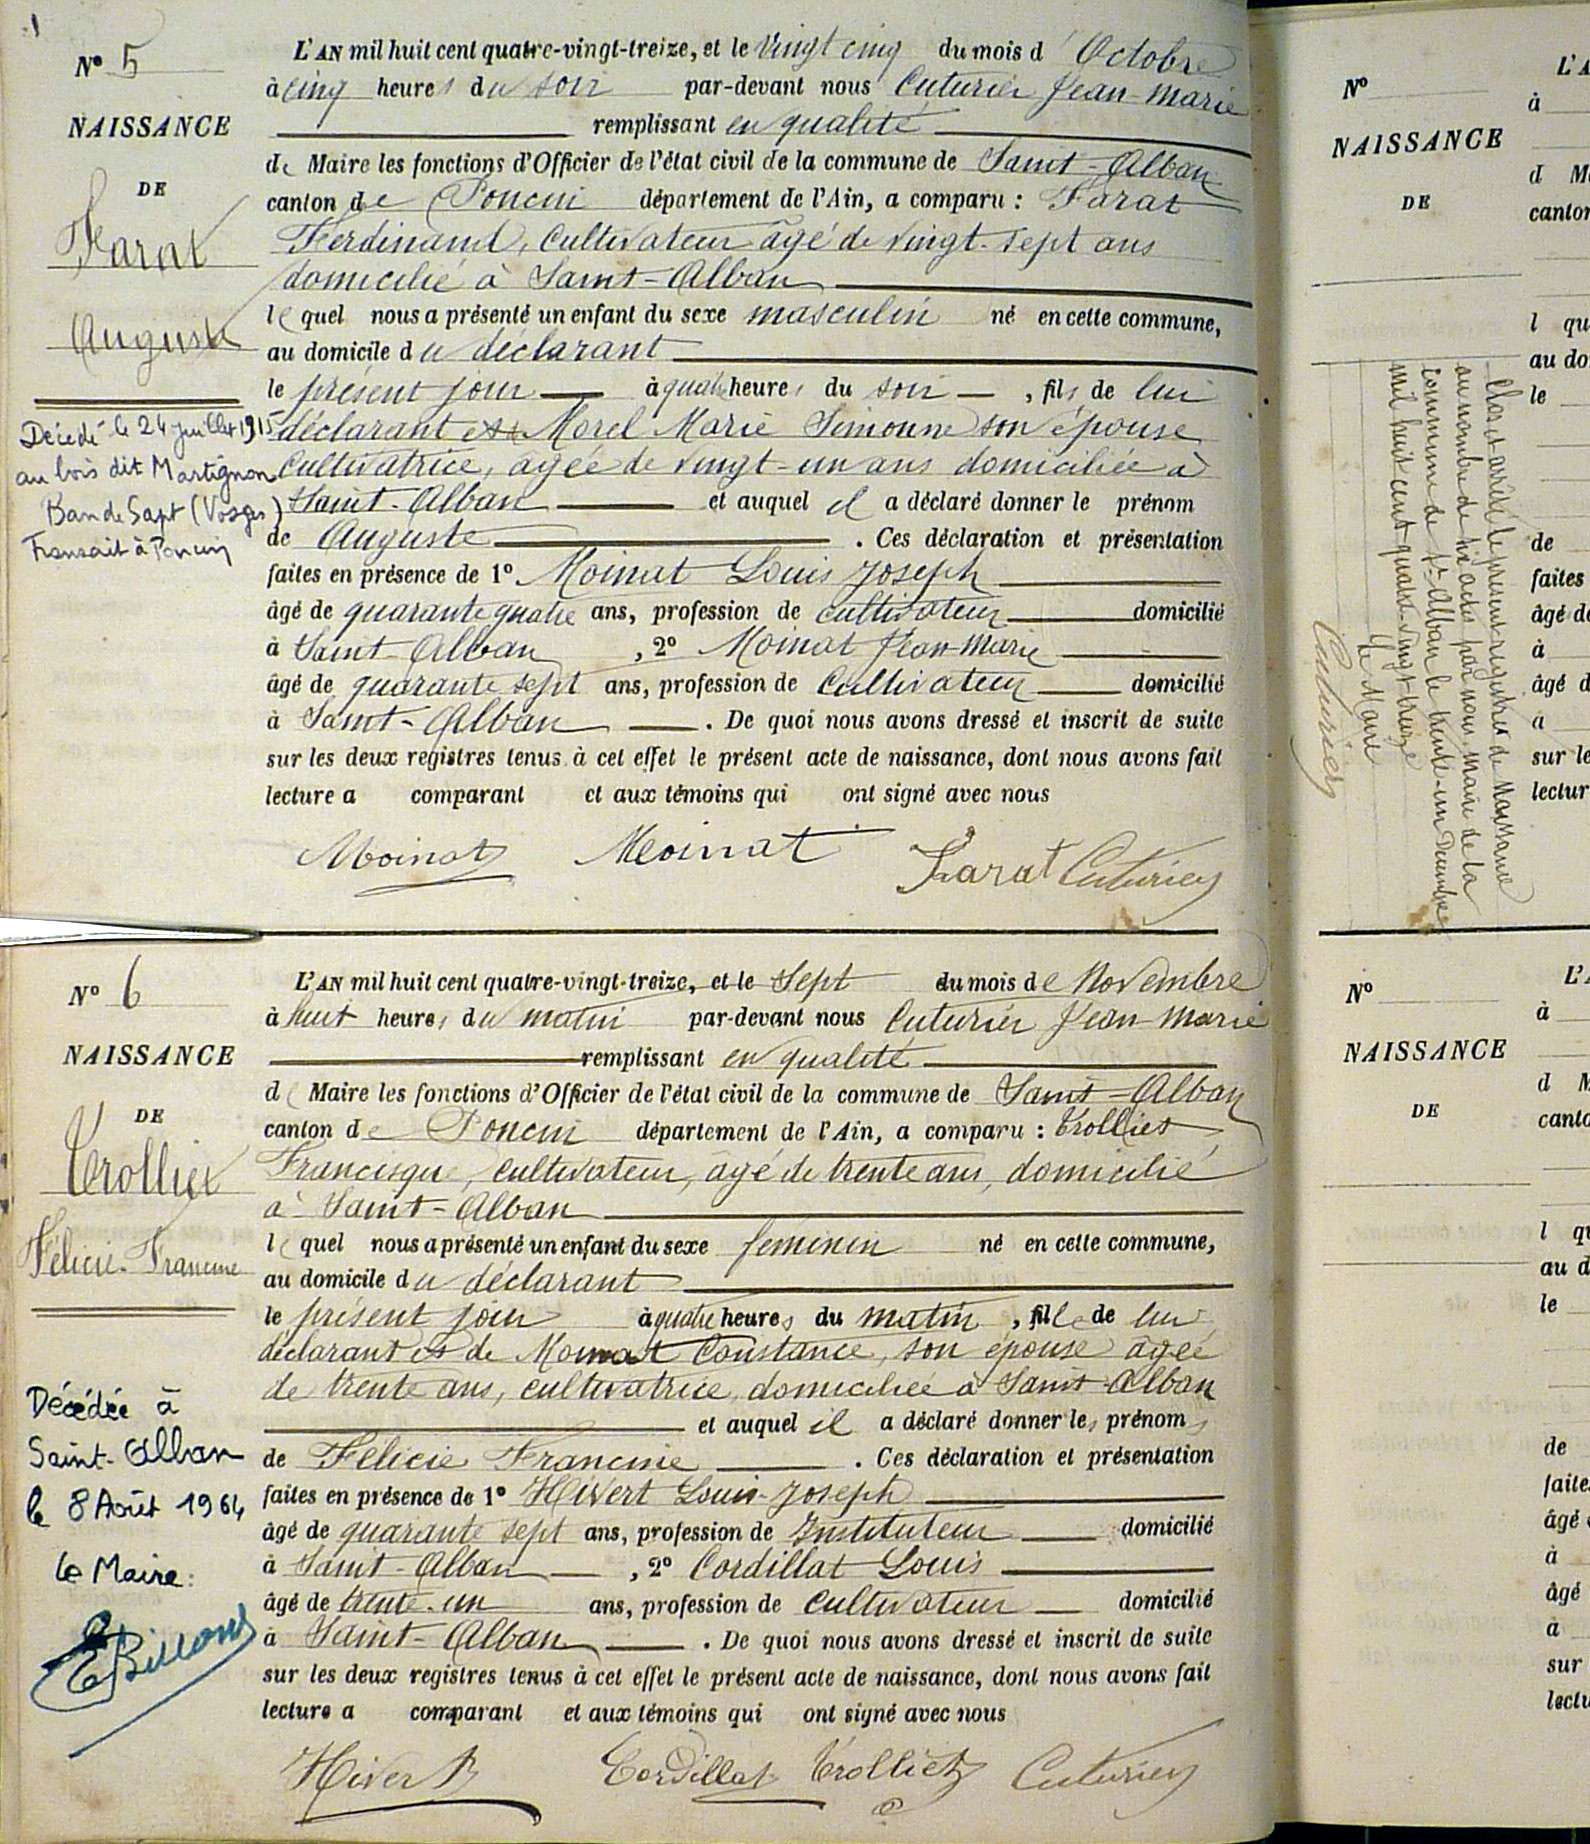 N° 5
NAISSANCE
DE
Farat
Auguste
Décédé le 24 juillet 1915
au bois dit Martignon
Ban de Sapt (Vosges)
Transcrit à Poncin
L'AN mil huit cent quatre-vingt-treize, et le vingt cinq du mois d'Octobre
à cinq heures du soir par-devant nous Cuturier Jean-Marie
remplissant en qualité
de Maire les fonctions d'Officier de l'état civil de la commune de Saint-Alban
canton de Poncin département de l'Ain, a comparu : Farat
Ferdinand, cultivateur âgé de vingt-sept ans
domicilié à Saint-Alban
lequel nous a présenté un enfant du sexe masculin né en cette commune,
au domicile du déclarant
le présent jour à quatre heures du soir, fils de lui
déclarant et Morel Marie Simonne son épouse
cultivatrice, agée de vingt-un ans domiciliée à
Saint-Alban et auquel il a déclaré donner le prénom
de Auguste. Ces déclaration et présentation
faites en présence de 1° Moinat Louis Joseph
âgé de quarante quatre ans, profession de cultivateur domicilié
à Saint-Alban, 2° Moinat Jean-Marie
âgé de quarante sept ans, profession de cultivateur domicilié
à Saint-Alban. De quoi nous avons dressé et inscrit de suite
sur les deux registres tenus à cet effet le présent acte de naissance, dont nous avons fait
lecture a comparant et aux témoins qui ont signé avec nous
Moinat Moinat Farat Cuturier
N° 6
NAISSANCE
DE
Trolliet
Félicie-Francine
Décédée à
Saint-Alban
le 8 Août 1964
le Maire :
EBillon
L'AN mil huit cent quatre-vingt-treize, et le sept du mois de Novembre
à huit heures du matin par-devant nous Cuturier Jean-Marie
remplissant en qualité
de Maire les fonctions d'Officier de l'état civil de la commune de Saint-Alban
canton de Poncin département de l'Ain, a comparu : Trolliet
Francisque, cultivateur, agé de trente ans, domicilié
à Saint-Alban
lequel nous a présenté un enfant du sexe feminin né en cette commune,
au domicile du déclarant
le présent jour à quatre heures du matin, fille de lui
déclarant et de Moinat Constance, son épouse agée
de trente ans, cultivatrice domiciliée à Saint-Alban
et auquel il a déclaré donner les prénoms
de Félicie Francine. Ces déclaration et présentation
faites en présence de 1° Hivert Louis-Joseph
âgé de quarante sept ans, profession de Instituteur domicilié
à Saint-Alban, 2° Cordillat Louis
âgé de trente-un ans, profession de cultivateur domicilié
à Saint-Alban. De quoi nous avons dressé et inscrit de suite
sur les deux registres tenus à cet effet le présent acte de naissance, dont nous avons fait
lecture a comparant et aux témoins qui ont signé avec nous
Hivert Cordillat Trolliet Cuturier
N°
NAISSANCE
DE
Clos et arrêté le présent registre de Naissance
au nombre de six actes par nous, maire de la
commune de St-Alban le trente-un Décembre
mil huit cent quatre-vingt-treize
Le Maire
Cuturier
L'A
à
d M
canton
l qu
au do
le
de
faites
âgé de
à
âgé d
à
sur le
lectur
N°
NAISSANCE
DE
L'
à
d M
canto
l qu
au d
le
de
faite
âgé
à
âgé
à
sur
lectu